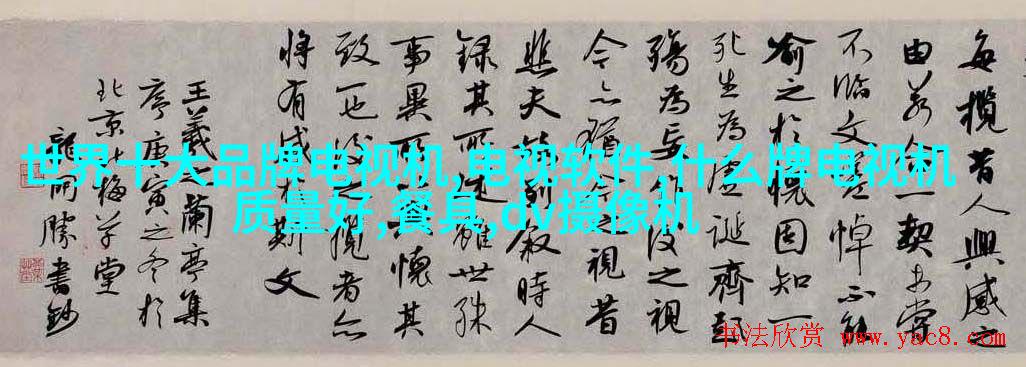 每攬昔人興感之
由若合一契未嘗
不臨文嗟悼不能
喻之於懷固知一
死生為虛誕齊彭
殤為妄作後之視
今亦猶今之視昔
悲夫故列敘時人
錄其所述雖世殊
事異所以興懷其
致一也後之攬者亦
將有感於斯文
王羲之蘭亭集
序庚寅之冬於
北京七梅草堂
龍開勝書鈔
世界十大品牌电视机,电视软件,什么牌电视机
质量好,餐具,dv摄像机
书法欣赏 www.yac8.com